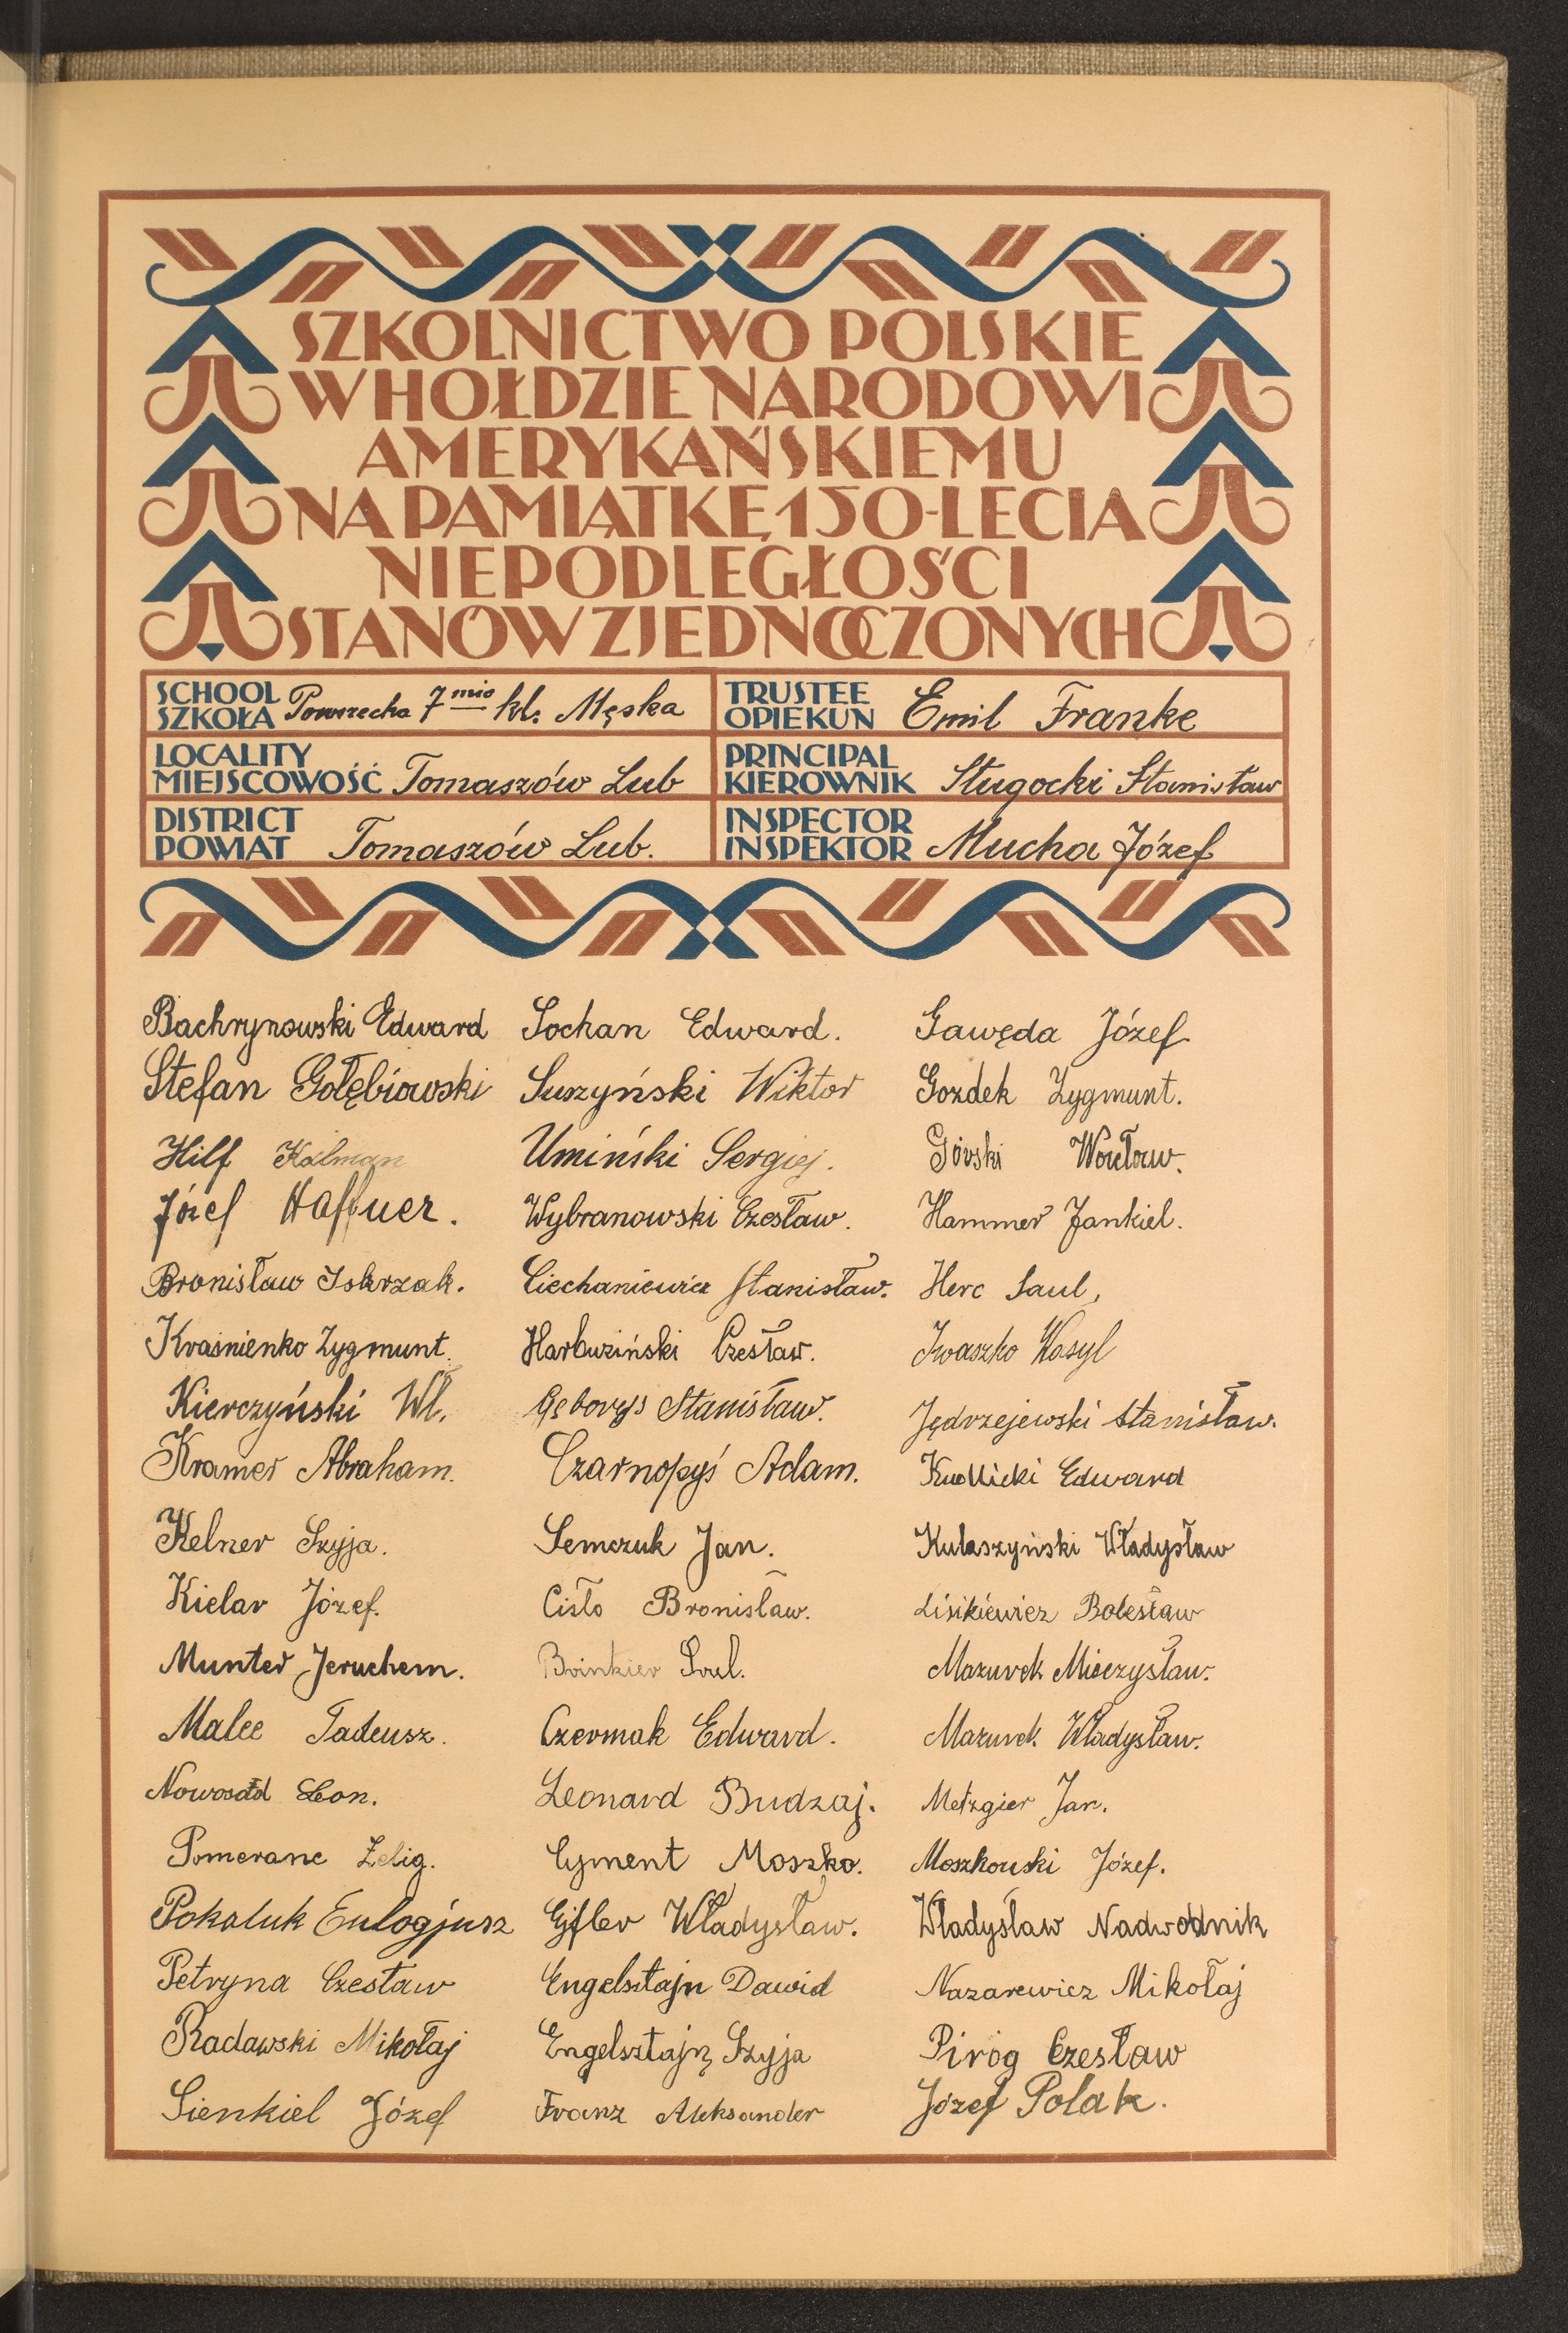 SZKOLNICTWO POLSKIE
W HOŁDZIE NARODOWI
AMERYKAŃSKIEMU
NA PAMIĄTKĘ 150-LECIA
NIEPODLEGŁOŚCI
STANÓW ZJEDNOCZONYCH
SCHOOL
SZKOŁA Powszecha 7mio kl. Męska
TRUSTEE
OPIEKUN Emil Franke
LOCALITY
MIEJSCOWOŚĆ Tomaszów Lub
PRINCIPAL
KIEROWNIK Sługocki Stanisław
DISTRICT
POWIAT Tomaszów Lub.
INSPECTOR
INSPEKTOR Mucha Józef
Bachrynowski Edward
Stefan Gołębiowski
Hilf Kalman
Józef Haffner.
Bronisław Iskrzak.
Kraśnienko Zygmunt.
Kierczyński Wł.
Kramer Abraham.
Kelner Szyja.
Kielar Józef.
Munter Jeruchem.
Malec Tadeusz.
Nowosad Leon.
Pomeranc Zelig.
Pokaluk Eulogjusz
Petryna Czesław
Radawski Mikołaj
Sienkiel Józef
Sochan Edward.
Suszyński Wiktor
Umiński Sergiej.
Wybranowski Czesław.
Ciechaniewicz Stanisław.
Harbuziński Czesław.
Gęborys Stanisław.
Czarnopyś Adam.
Semczuk Jan.
Cisło Bronisław.
Srul.
Czermak Edward.
Leonard Budzaj.
Cyment Moszko.
Władysław.
Engelsztajn Dawid
Engelsztajn Szyja
Franz Aleksander
Gawęda Józef
Gozdek Zygmunt.
Górski Wacław.
Hammer Jankiel.
Herc Saul,
Iwaszko Wasyl
Jędrzejewski Stanisław.
Kudlicki Edward
Kułaszyński Władysław
Lisikiewicz Bolesław
Mazurek Mieczysław.
Mazurek Władysław.
Metzgier Jan.
Moszkowski Józef.
Władysław Nadwodnik
Nazarewicz Mikołaj
Piróg Czesław
Józef Polak.